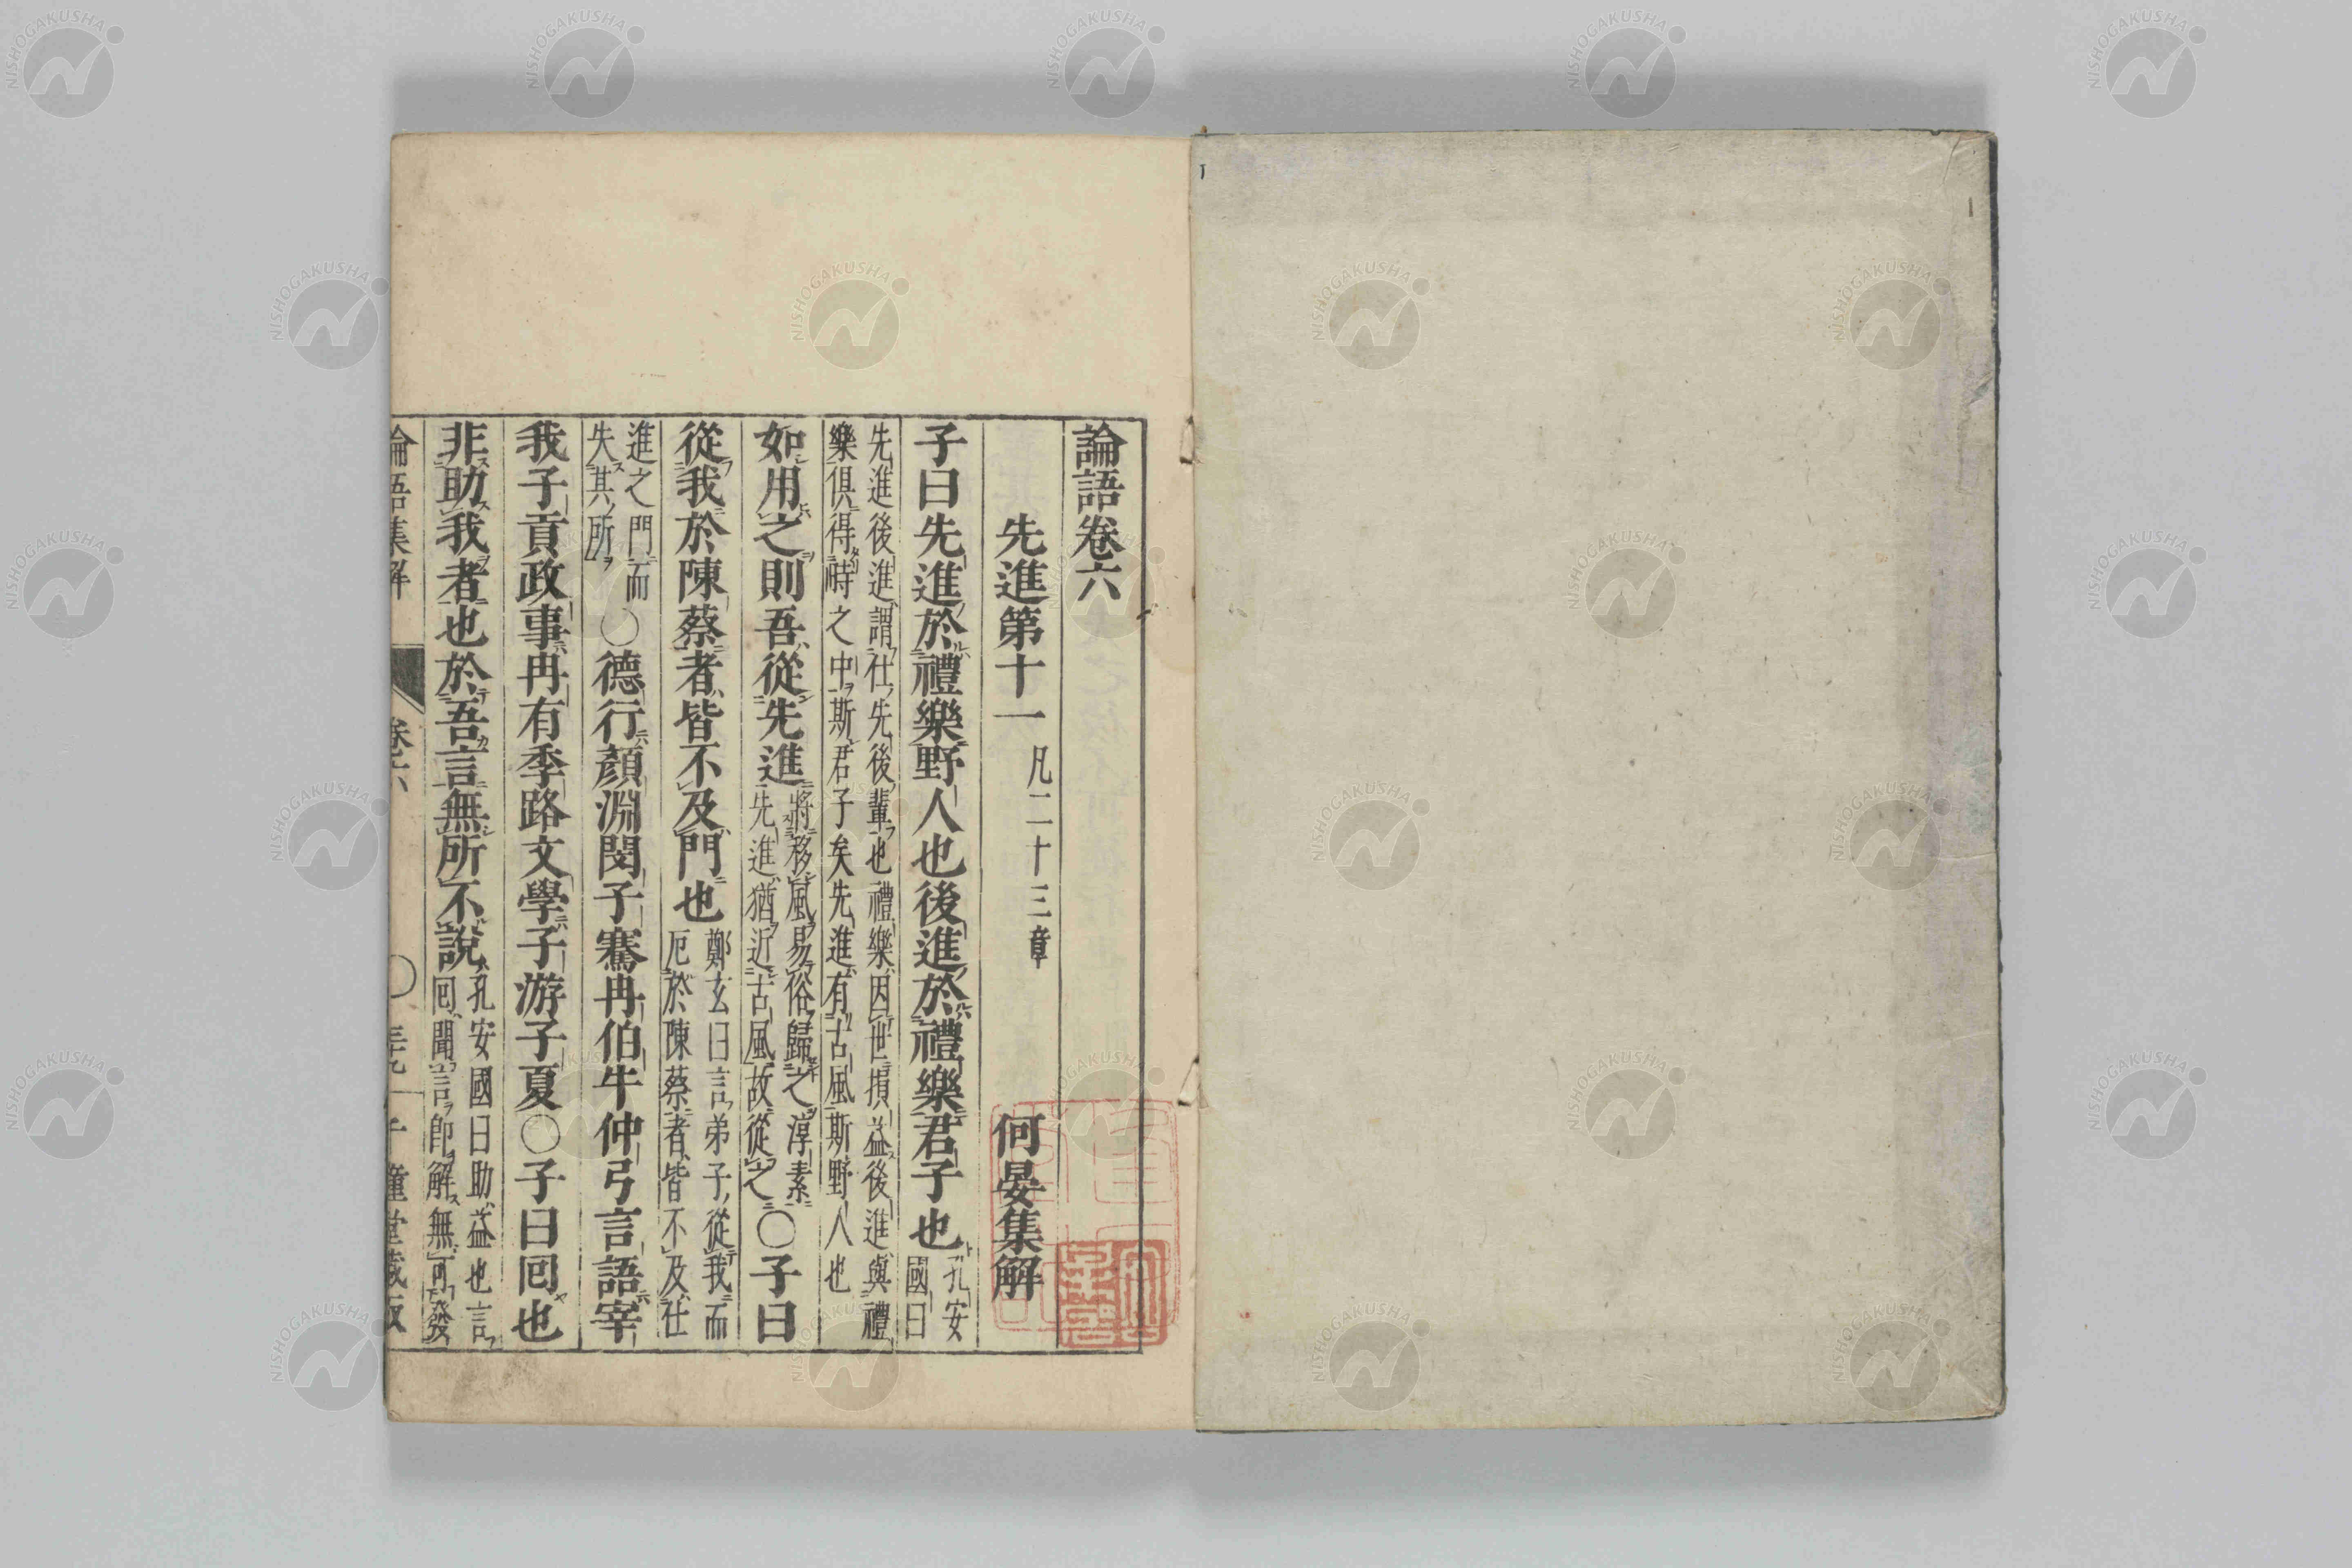 論語卷六
先進第十一 凡二十三章 何晏集解
子曰先進於禮樂野人也後進於禮樂君子也 孔安國曰
先進後進謂仕先後輩也禮樂因世損益後進與禮
樂俱得時之中斯君子矣先進有古風斯野人也
如用之則吾從先進 將移風易俗歸之淳素先進猶近古風故從之 ○子曰
從我於陳蔡者皆不及門也 鄭玄曰言弟子從我而厄於陳蔡者皆不及仕
進之門而失其所 ○德行顏淵閔子騫冉伯牛仲弓言語宰
我子貢政事冉有季路文學子游子夏○子曰回也
非助我者也於吾言無所不說 孔安國曰助益也言回聞言即解無可發
論語集解 卷六 ○
NISHOGAKUSHA